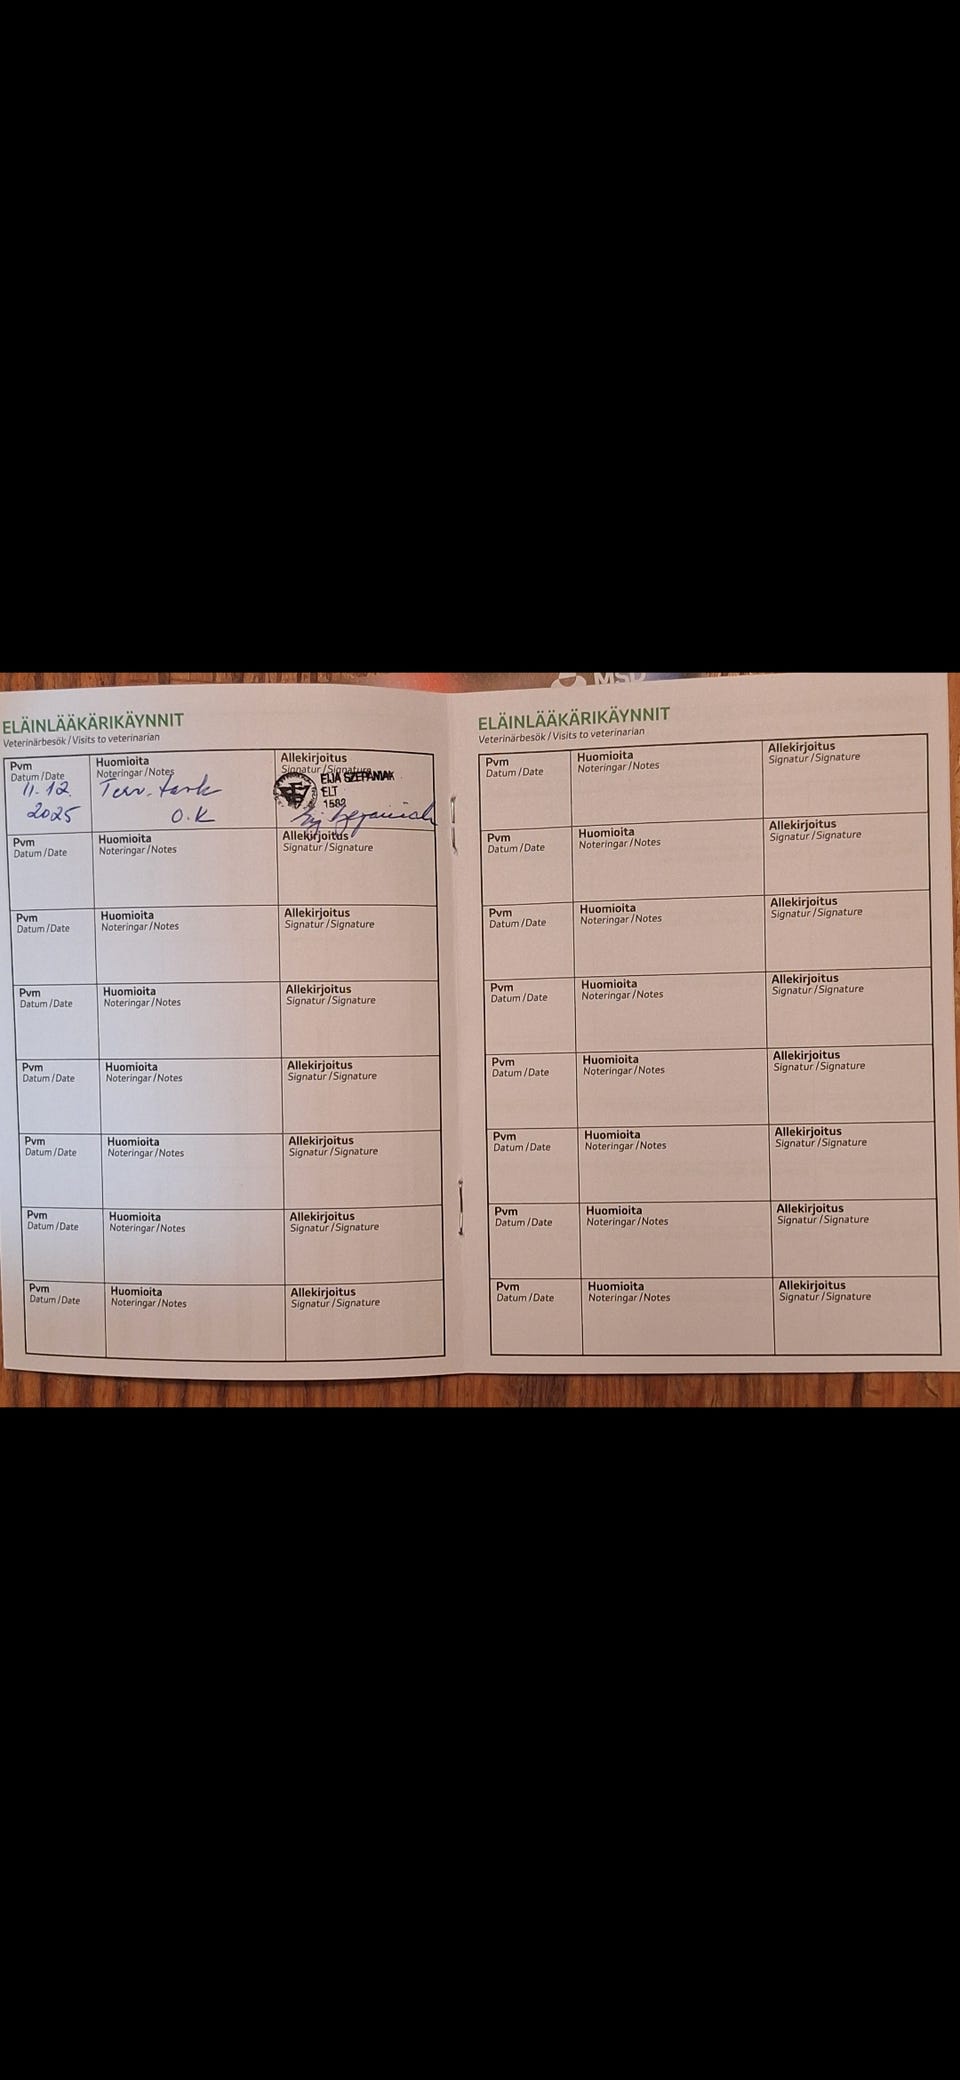 MSD
ELÄINLÄÄKÄRIKÄYNNIT
Veterinärbesök / Visits to veterinarian
Pvm
Datum / Date
11.12.
2025
Huomioita
Noteringar / Notes
Terv. tark
O.K
Allekirjoitus
Signatur / Signature
EIJA SZEPANIAK
ELT
1582
Pvm
Datum / Date
Huomioita
Noteringar / Notes
Allekirjoitus
Signatur / Signature
Pvm
Datum / Date
Huomioita
Noteringar / Notes
Allekirjoitus
Signatur / Signature
Pvm
Datum / Date
Huomioita
Noteringar / Notes
Allekirjoitus
Signatur / Signature
Pvm
Datum / Date
Huomioita
Noteringar / Notes
Allekirjoitus
Signatur / Signature
Pvm
Datum / Date
Huomioita
Noteringar / Notes
Allekirjoitus
Signatur / Signature
Pvm
Datum / Date
Huomioita
Noteringar / Notes
Allekirjoitus
Signatur / Signature
Pvm
Datum / Date
Huomioita
Noteringar / Notes
Allekirjoitus
Signatur / Signature
ELÄINLÄÄKÄRIKÄYNNIT
Veterinärbesök / Visits to veterinarian
Pvm
Datum / Date
Huomioita
Noteringar / Notes
Allekirjoitus
Signatur / Signature
Pvm
Datum / Date
Huomioita
Noteringar / Notes
Allekirjoitus
Signatur / Signature
Pvm
Datum / Date
Huomioita
Noteringar / Notes
Allekirjoitus
Signatur / Signature
Pvm
Datum / Date
Huomioita
Noteringar / Notes
Allekirjoitus
Signatur / Signature
Pvm
Datum / Date
Huomioita
Noteringar / Notes
Allekirjoitus
Signatur / Signature
Pvm
Datum / Date
Huomioita
Noteringar / Notes
Allekirjoitus
Signatur / Signature
Pvm
Datum / Date
Huomioita
Noteringar / Notes
Allekirjoitus
Signatur / Signature
Pvm
Datum / Date
Huomioita
Noteringar / Notes
Allekirjoitus
Signatur / Signature